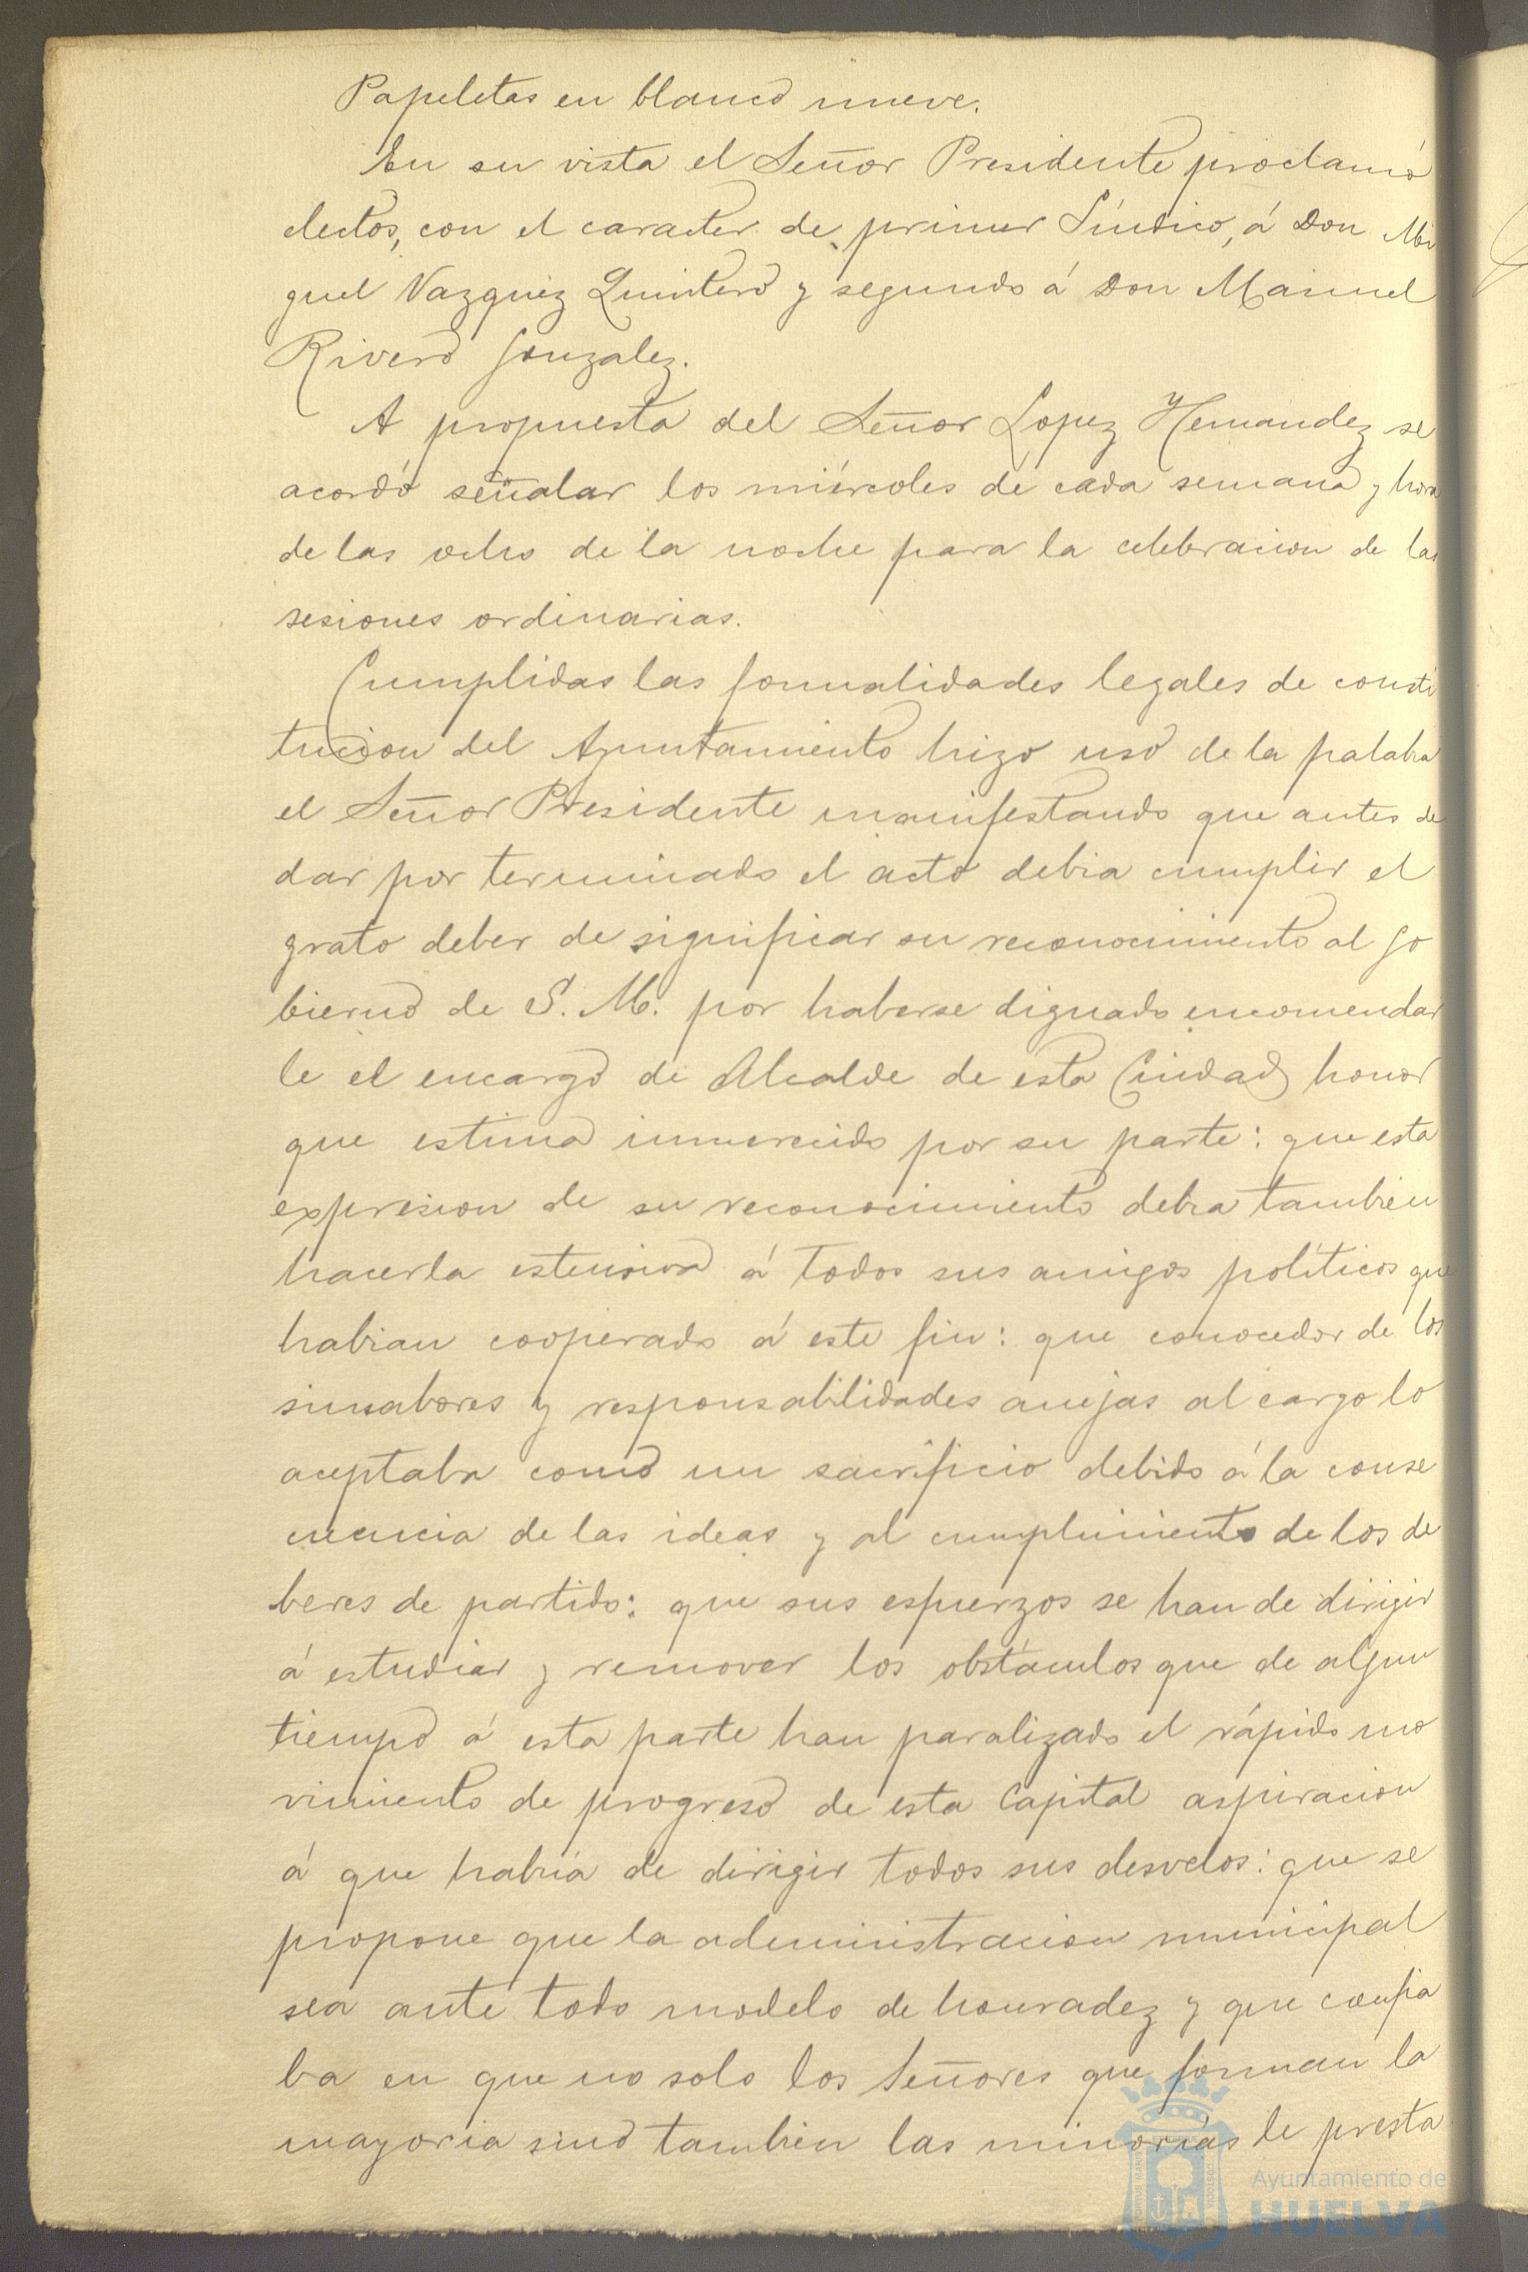 Papeletas en blanco nueve.
En su vista el Señor Presidente proclamó
electos, con el caracter de primer Síndico, á Don Mi
guel Vazquez Quintero y segundo á Don Manuel
Rivero Gonzalez.
A propuesta del Señor Lopez Hernandez se
acordó señalar los miércoles de cada semana y hora
de las ocho de la noche para la celebracion de las
sesiones ordinarias.
Cumplidas las formalidades legales de consti
tucion del Ayuntamiento hizo uso de la palabra
el Señor Presidente manifestando que antes de
dar por terminado el acto debia cumplir el
grato deber de significar su reconocimiento al Go
bierno de S. M. por haberse dignado encomendar
le el encargo de Alcalde de esta Ciudad honor
que estima inmerecido por su parte: que esta
expresion de su reconocimiento debia tambien
hacerla estensiva á todos sus amigos políticos que
habian cooperado á este fin: que conocedor de los
sinsabores y responsabilidades anejas al cargo lo
aceptaba como un sacrificio debido á la conse
cuencia de las ideas y al cumplimiento de los de
beres de partido: que sus esfuerzos se han de dirigir
á estudiar y remover los obstáculos que de algun
tiempo á esta parte han paralizado el rápido mo
vimiento de progreso de esta Capital aspiracion
á que habria de dirigir todos sus desvelos: que se
propone que la administracion municipal
sea ante todo modelo de honradez y que confia
ba en que no solo los Señores que forman la
mayoria sino tambien las minorías le presta
Ayuntamiento de
HUELVA